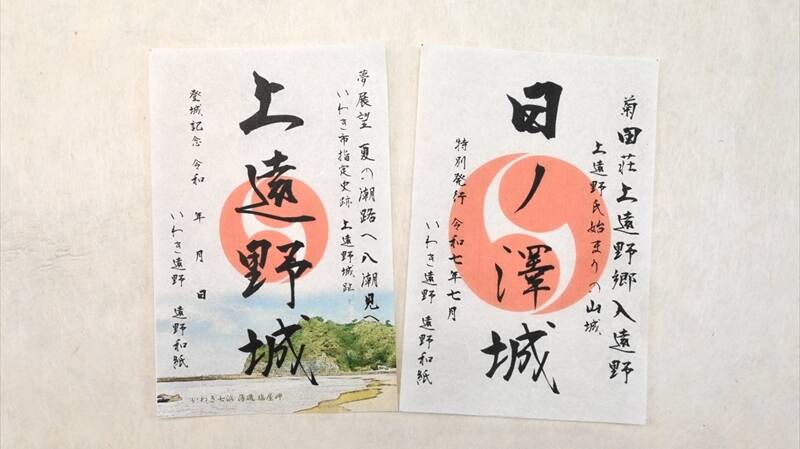 夢展望 夏の潮路へ八潮見へ
いわき市指定史跡 上遠野城跡
上遠野城
登城記念 令和 年 月 日
いわき遠野 遠野和紙
いわき七浜 薄磯 塩屋岬
菊田荘上遠野郷入遠野
上遠野氏始まりの山城
日ノ澤城
特別発行 令和七年七月
いわき遠野 遠野和紙